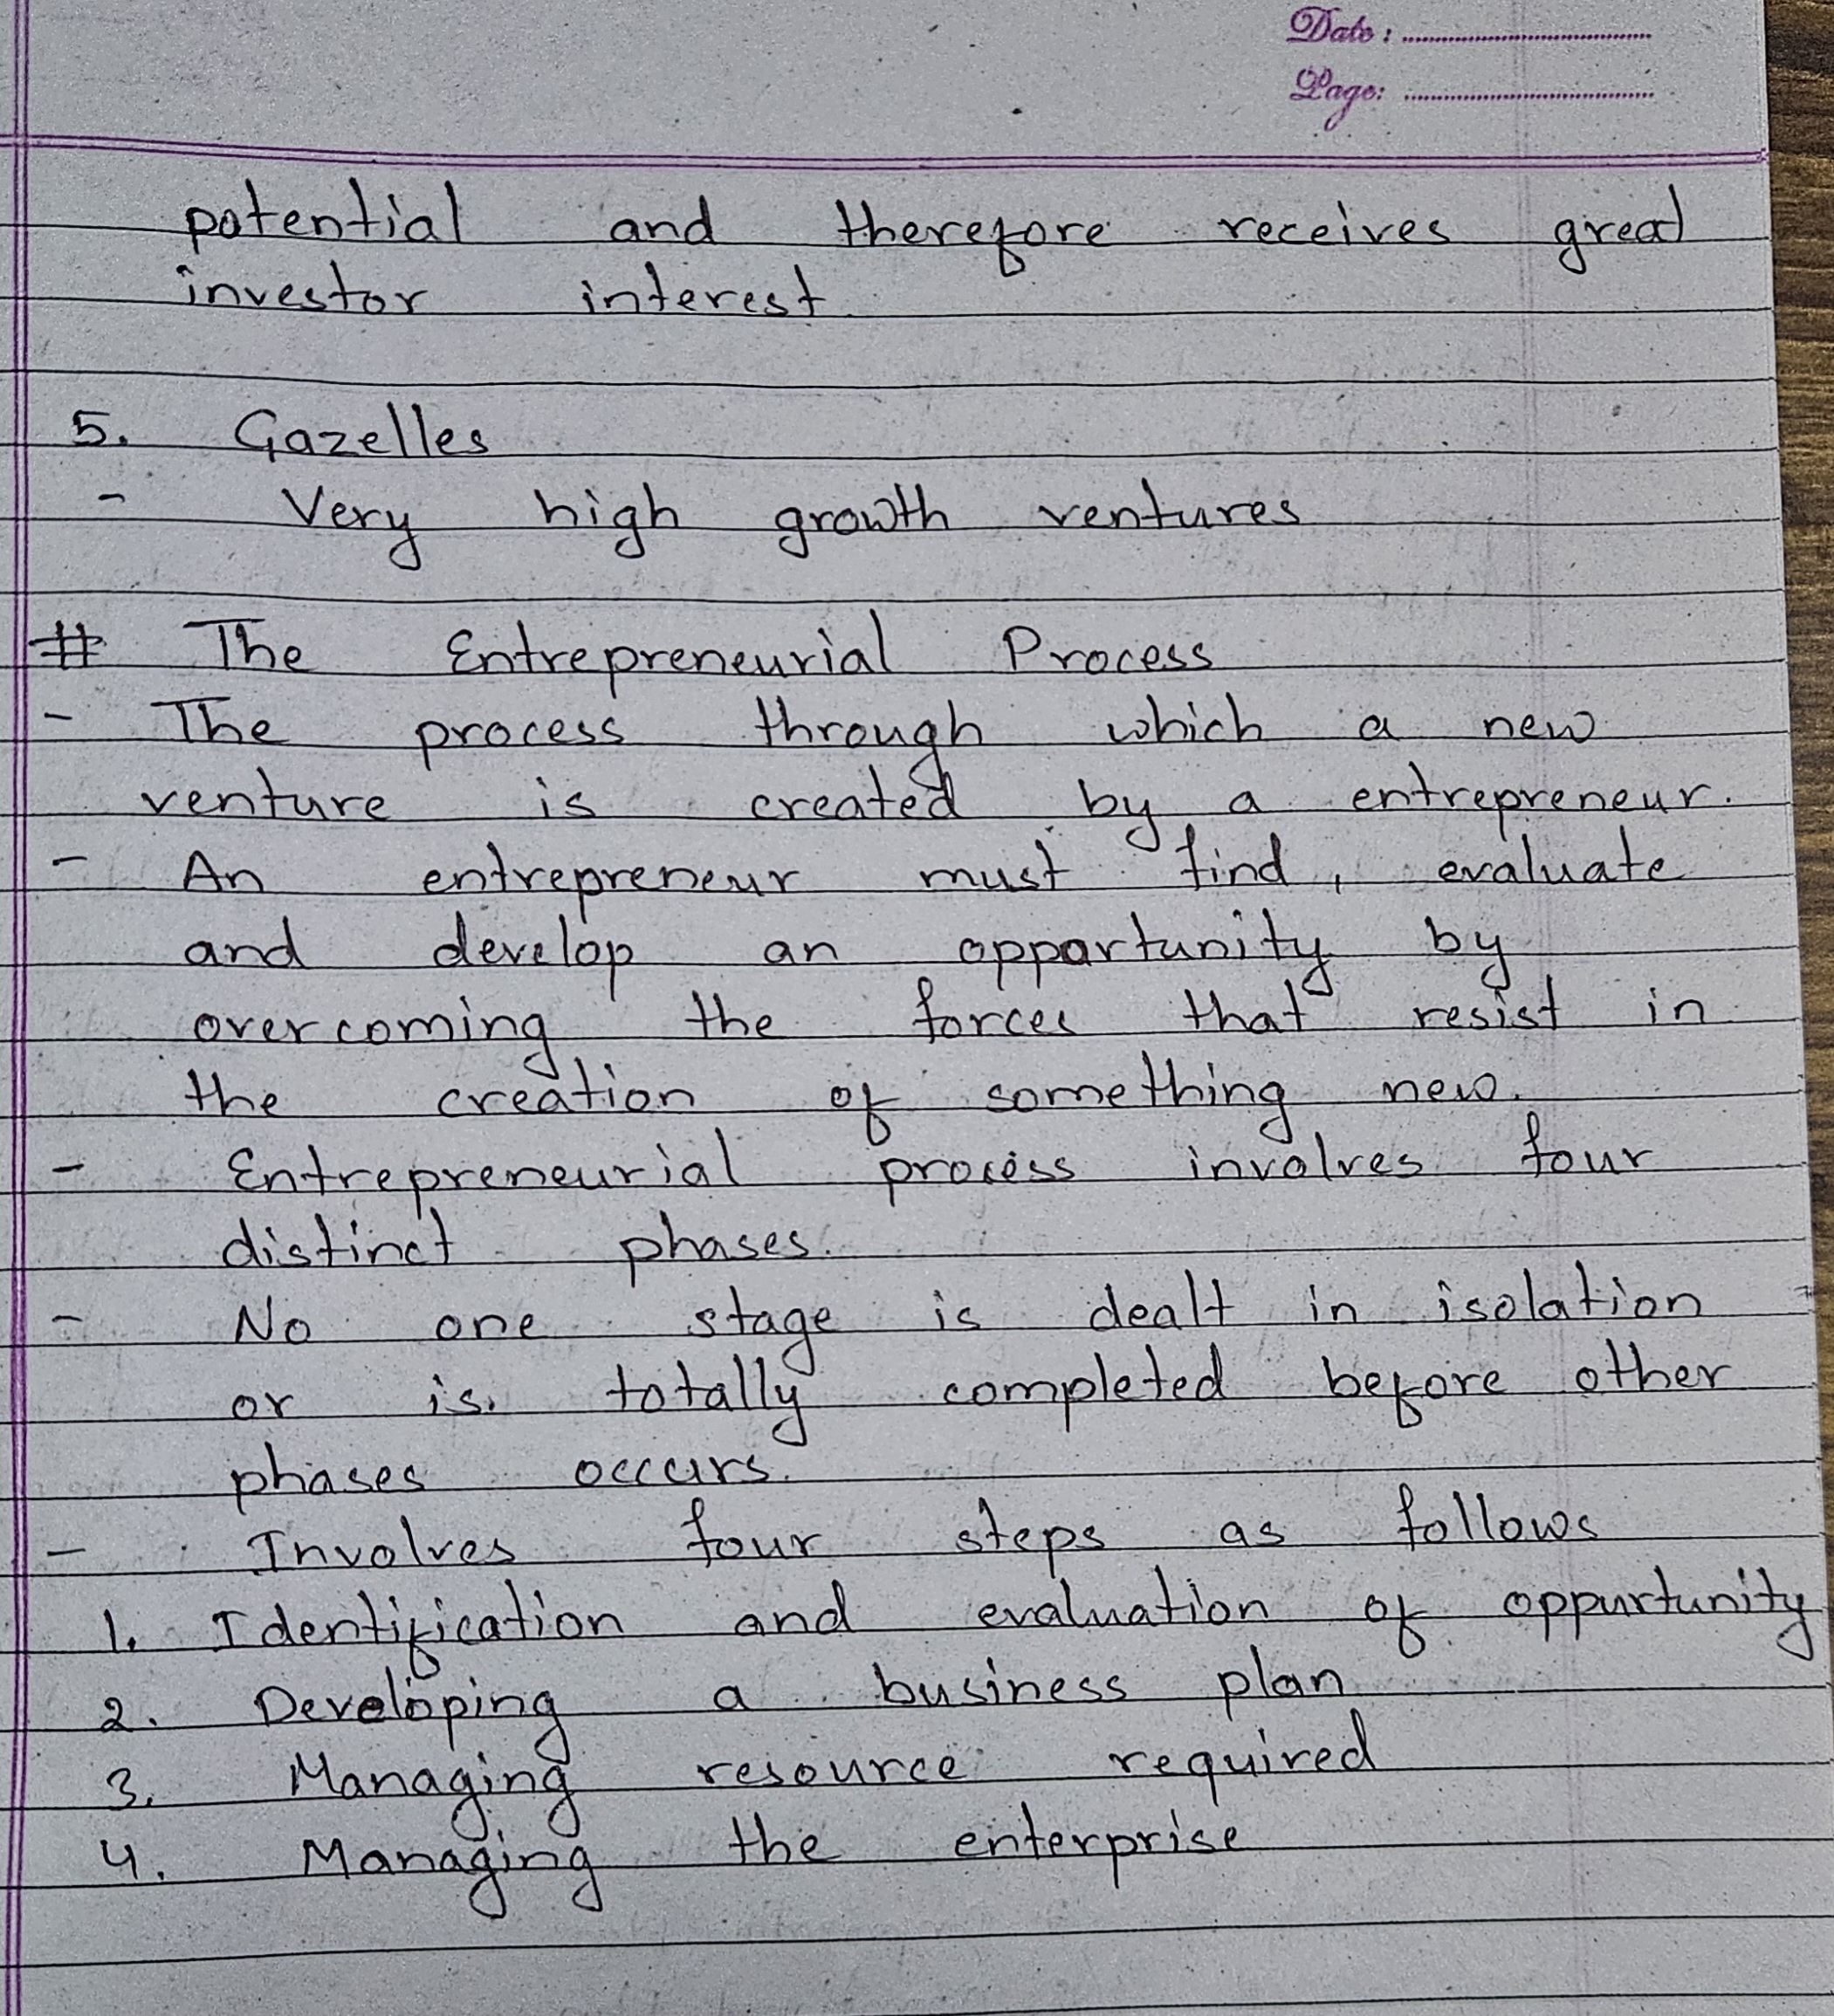 Date :
Page:
potential and therefore receives great
investor interest.
5. Gazelles
- Very high growth ventures
# The Entrepreneurial Process
- The process through which a new
venture is created by a entrepreneur.
- An entrepreneur must find, evaluate
and develop an opportunity by
overcoming the forces that resist in
the creation of something new.
- Entrepreneurial process involves four
distinct phases.
- No one stage is dealt in isolation
or is totally completed before other
phases occurs.
- Involves four steps as follows
1. Identification and evaluation of oppurtunity
2. Developing a business plan
3. Managing resource required
4. Managing the enterprise